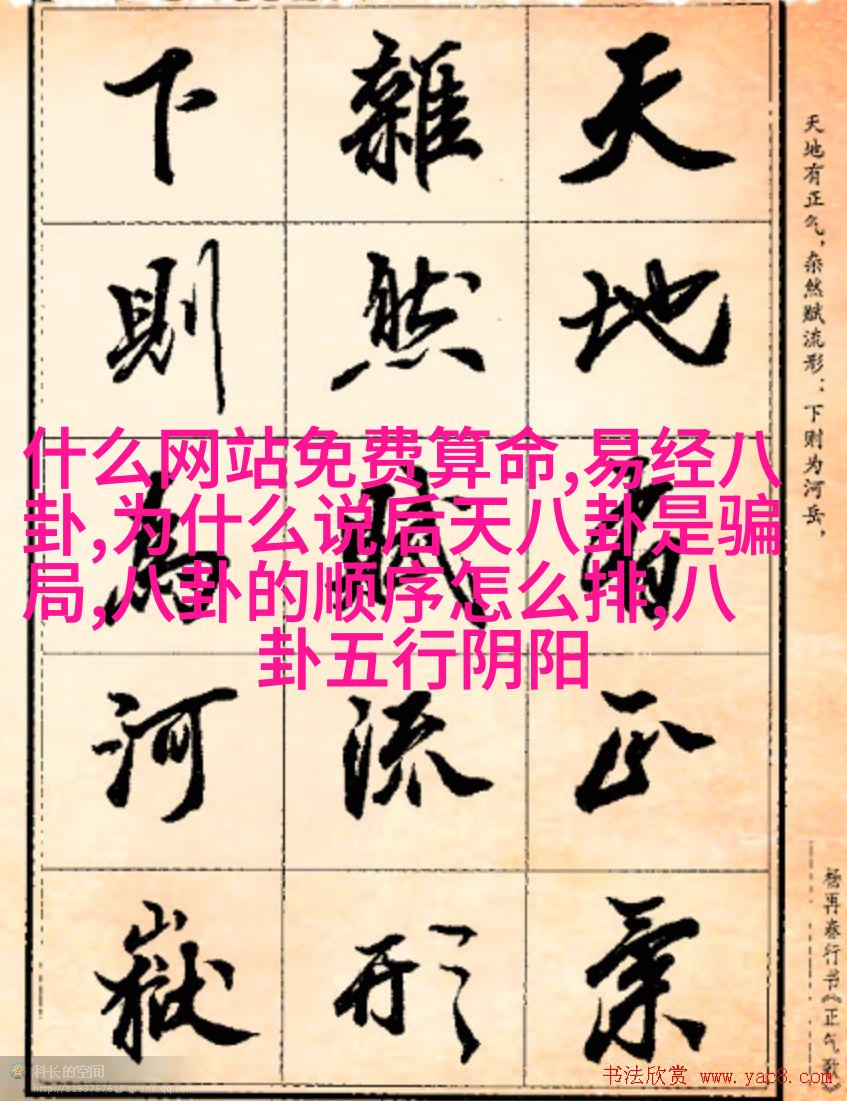 天地有正氣
雜然賦流形
下則為河嶽
天地有正气，杂然赋流形：下则为河岳，
杨再春行书《正气歌》
什么网站免费算命,易经八
卦,为什么说后天八卦是骗
局,八卦的顺序怎么排,八
卦五行阴阳
科长的空间
http://1193767618.qzone.qq.com
书法欣赏 www.yac8.com